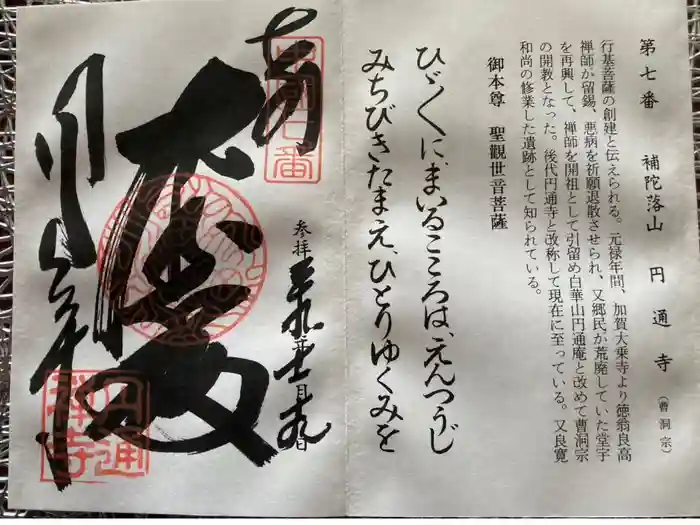 第七番 補陀落山 円通寺（曹洞宗）
行基菩薩の創建と伝えられる。元禄年間、加賀大乗寺より徳翁良高
禅師が留錫、悪病を祈願退散させられ、又郷民が荒廃していた堂宇
を再興して、禅師を開祖として引留め白華山円通庵と改めて曹洞宗
の開教となった。後代円通寺と改称して現在に至っている。又良寛
和尚の修業した遺跡として知られている。
御本尊 聖觀世音菩薩
ひゞくに、まいるこころは、えんつうじ
みちびきたまえ、ひとりゆくみを
参拝
月
日
円通
禅寺